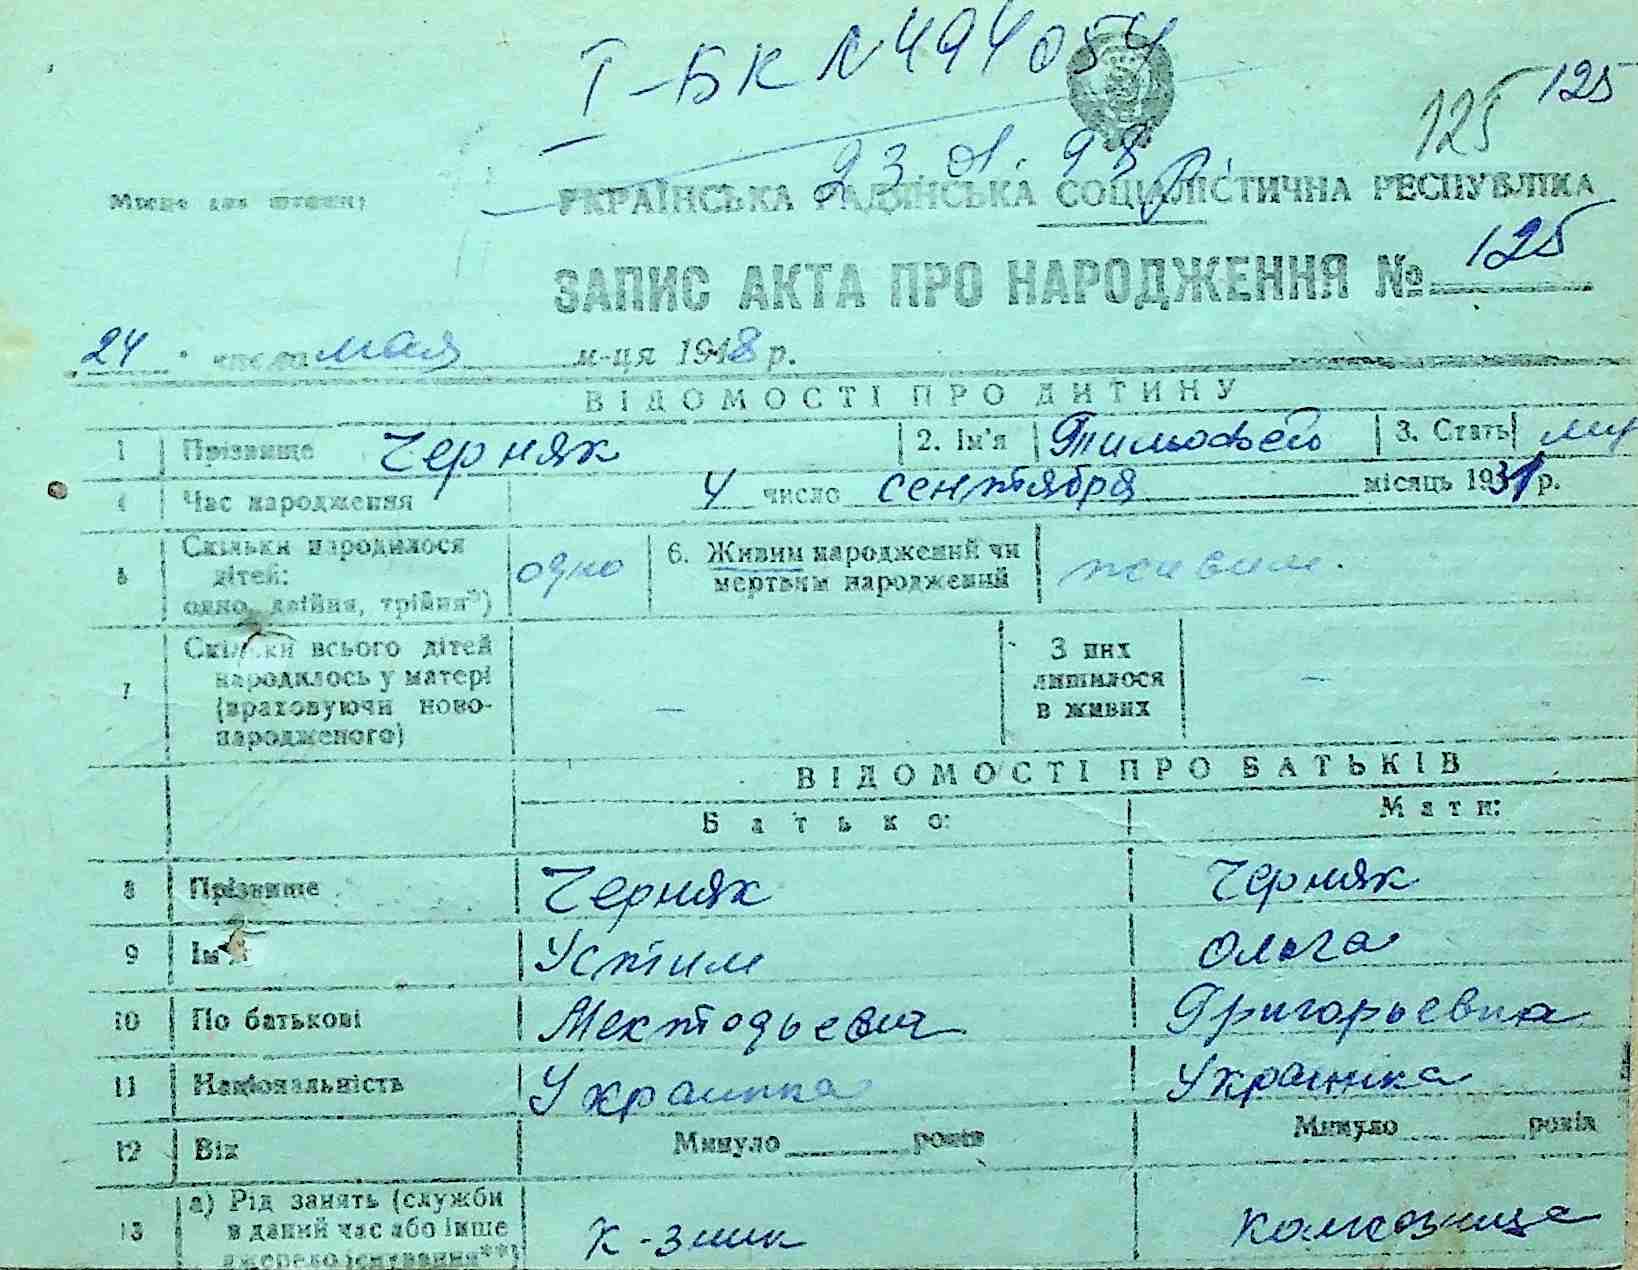 I-БК N 494054
125 125
23 01. 98 р.
Місце для штампу
УКРАЇНСЬКА РАДЯНСЬКА СОЦІАЛІСТИЧНА РЕСПУБЛІКА
ЗАПИС АКТА ПРО НАРОДЖЕННЯ № 125
24 числа мая м-ця 1948 р.
ВІДОМОСТІ ПРО ДИТИНУ
1 Прізвище Черняк 2. Ім'я Тимофей 3. Стать муж
4 Час народження 4 число сентября місяць 1931 р.
5 Скільки народилося дітей: одно, двійня, трійня*) одно 6. Живим народжений чи мертвим народжений живим.
7 Скільки всього дітей народилось у матері (враховуючи новонародженого) — З них лишилося в живих —
ВІДОМОСТІ ПРО БАТЬКІВ
Батько: Мати:
8 Прізвище Черняк Черняк
9 Ім'я Устим Ольга
10 По батькові Григорьевна
11 Національність Украинка Украинка
12 Вік Минуло ____ років Минуло ____ років
13 а) Рід занять (служби в даний час або інше джерело існування**) к-зник колхозница